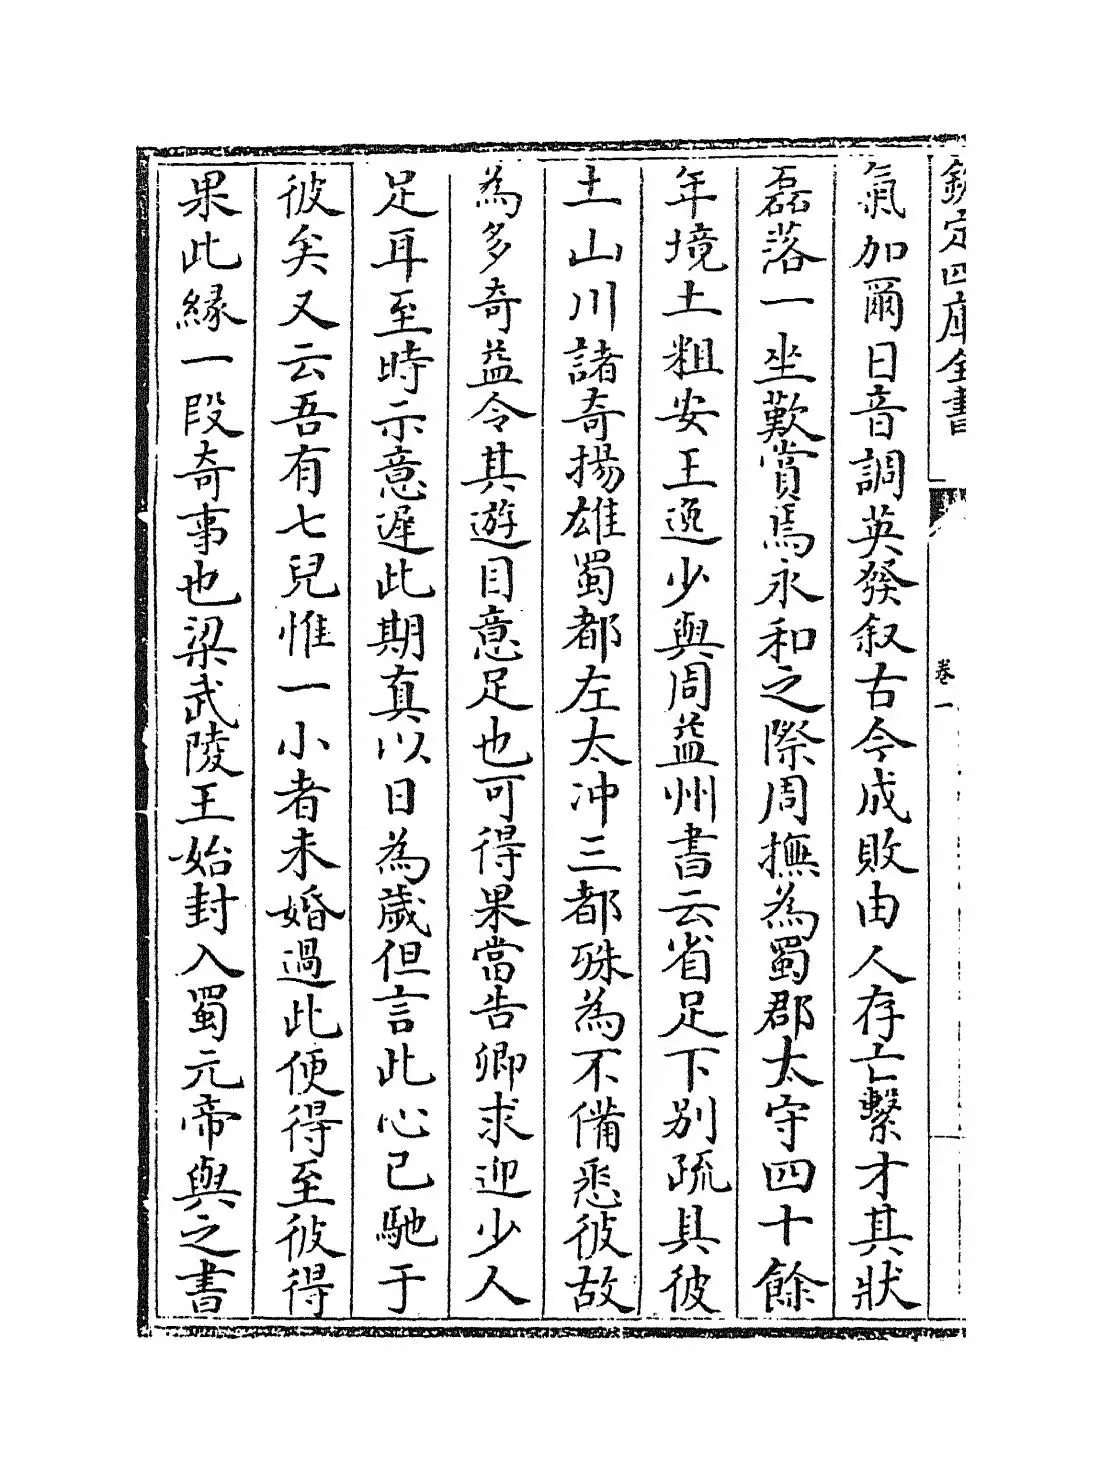 欽定四庫全書
卷一
氣加爾日音調英發叙古今成敗由人存亡繫才其狀
磊落一坐歎賞焉永和之際周撫為蜀郡太守四十餘
年境土粗安王逸少與周益州書云省足下別疏具彼
土山川諸奇揚雄蜀都左太冲三都殊為不備悉彼故
為多奇益令其遊目意足也可得果當告卿求迎少人
足耳至時示意遲此期真以日為歲但言此心已馳于
彼矣又云吾有七兒惟一小者未婚過此便得至彼得
果此緣一段奇事也梁武陵王始封入蜀元帝與之書